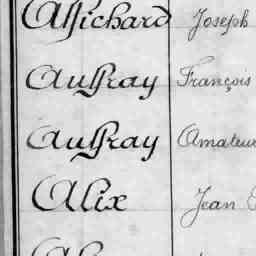 Affichard Joseph
Auffray François
Auffray Amateur
Alix Jean